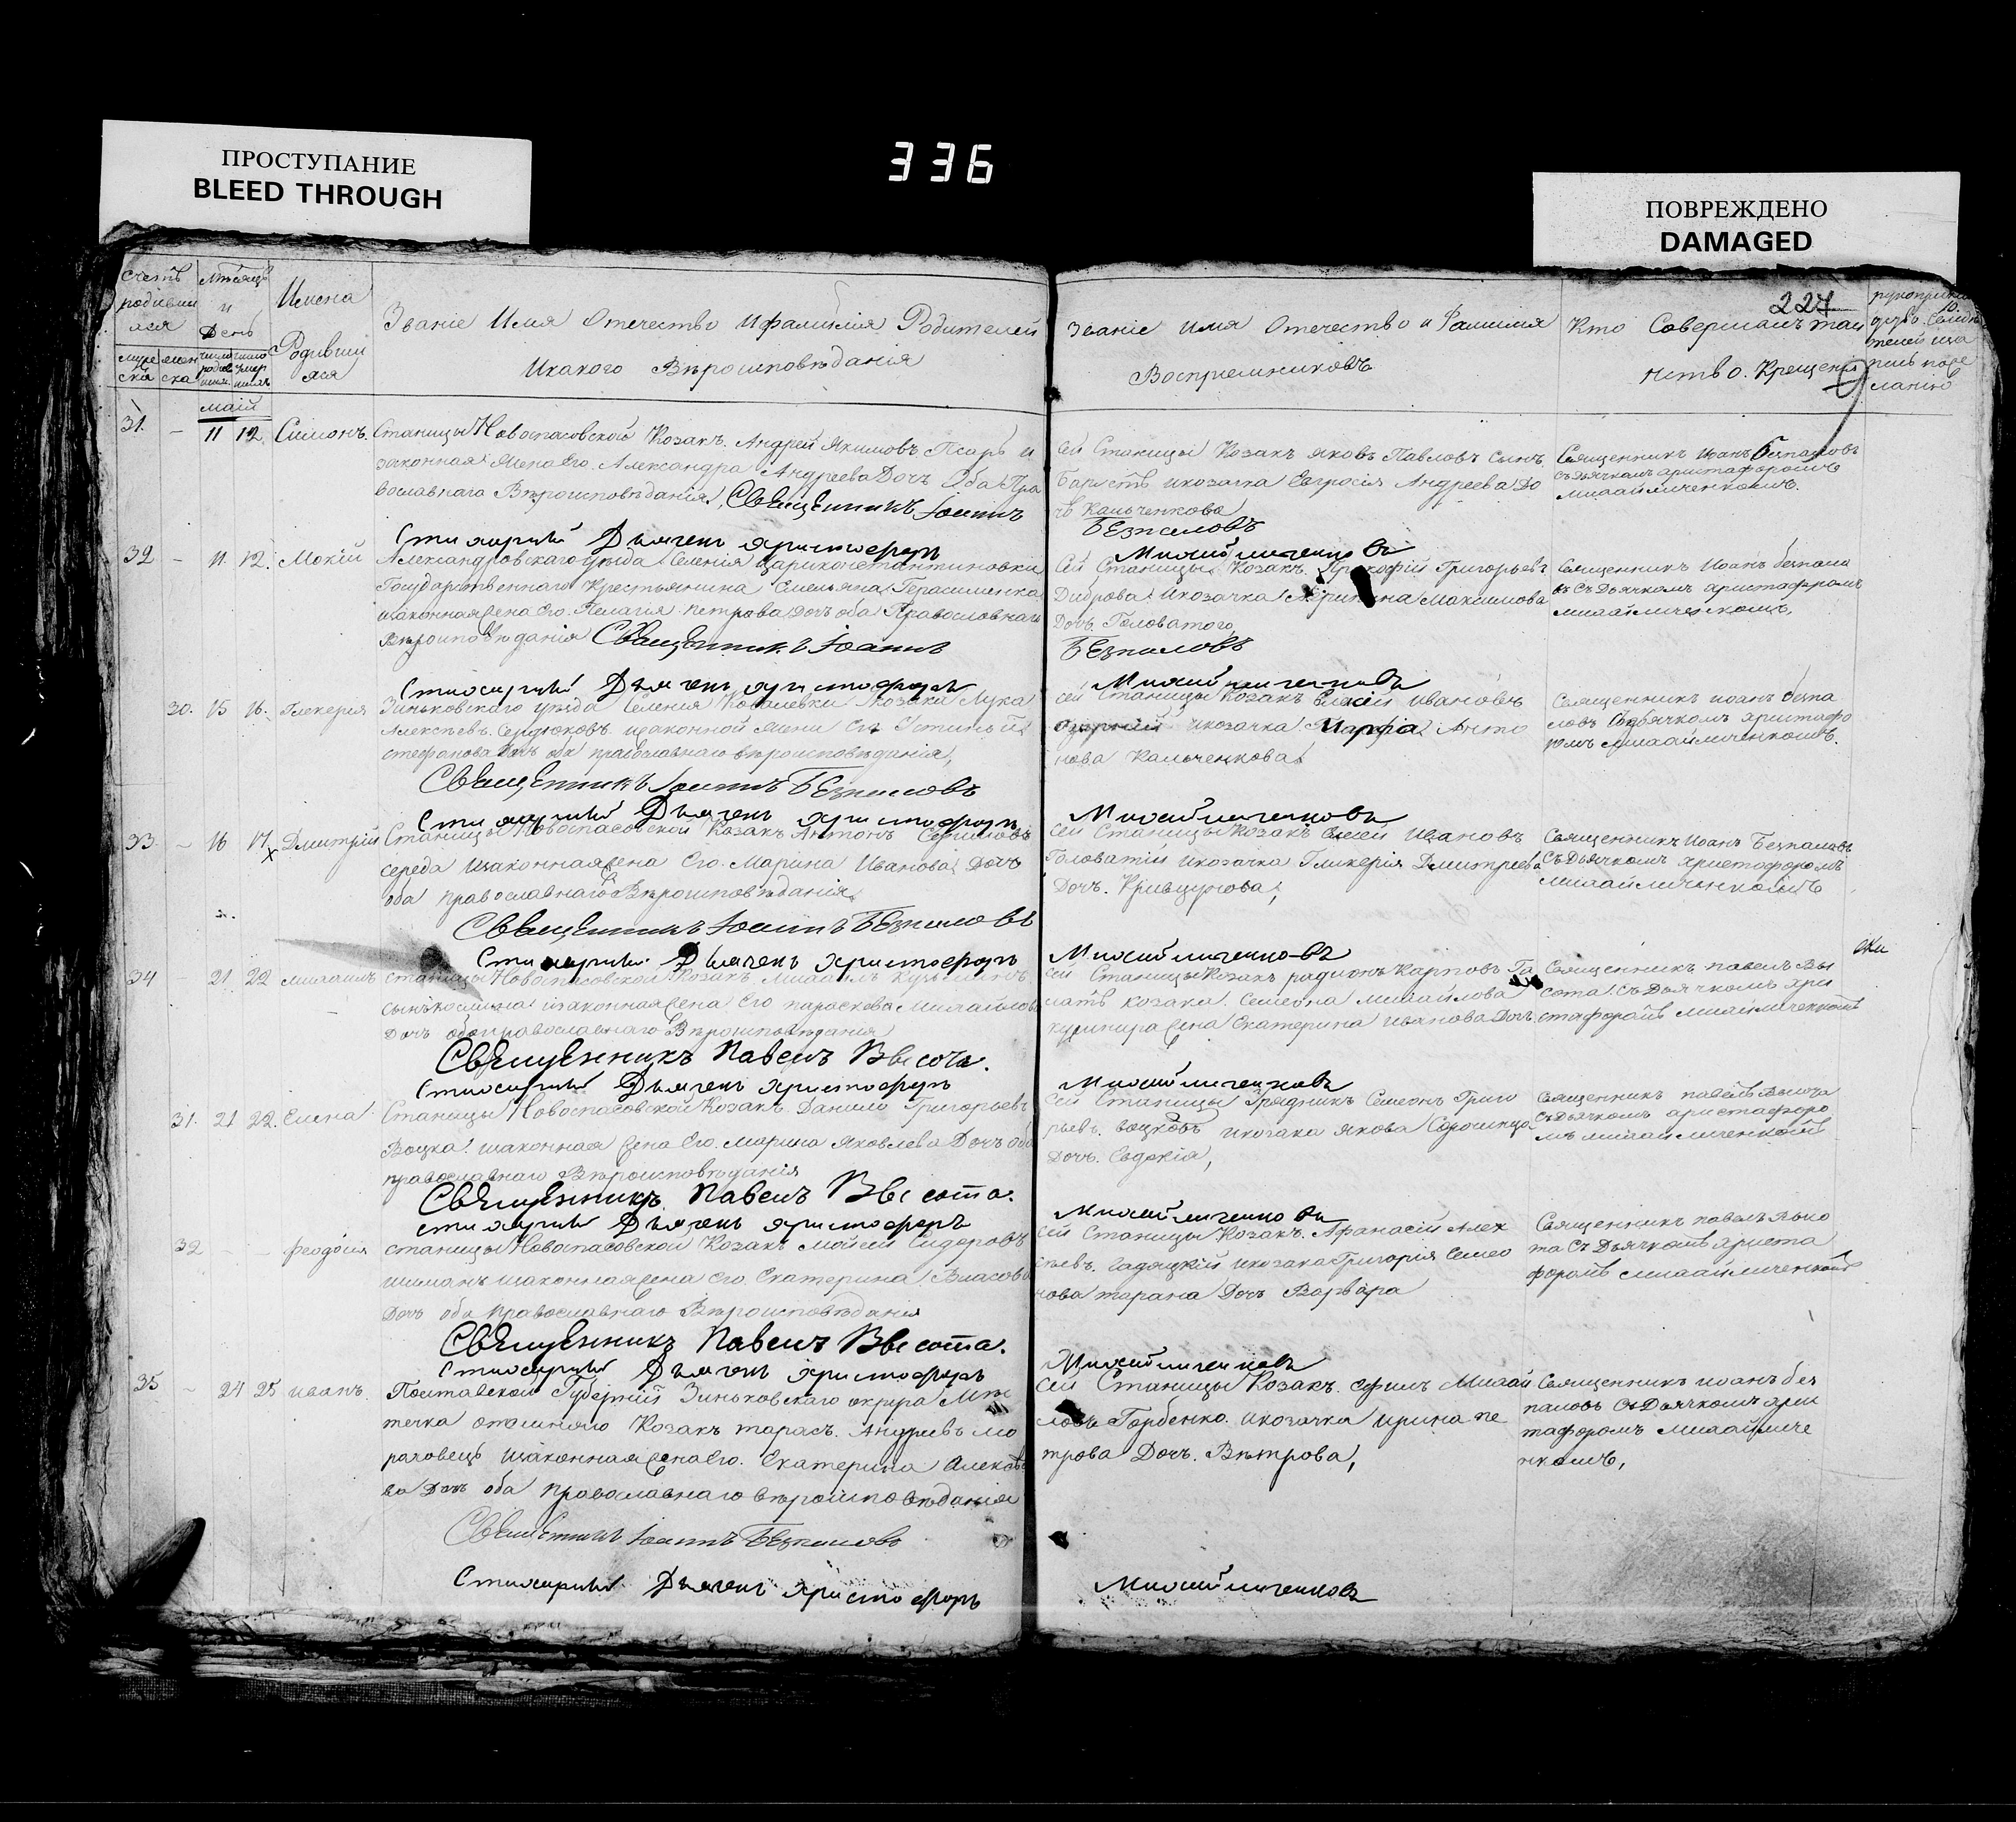 ПРОСТУПАНИЕ
BLEED THROUGH
336
ПОВРЕЖДЕНО
DAMAGED
227
Счетъ родивши
Мѣсяцъ и День
Имена Родивши яся
Званіе Имя Отечество и фамилія Родителей
И какого Вѣроисповѣданія
Званіе имя Отечество и Фамилия
Восприемниковъ
Кто Совершалъ таи
нство. Крещенія
маій
31. – 11 12 Симонъ. Станицы Новоспасовской Козакъ. Андрей Якимовъ Псаръ и
законная жена его. Александра Андреева Дочь Оба Пра
вославнаго Вѣроисповѣданія, Священникъ Іоаннъ
Стихарный Дьячекъ Христофоръ
сей Станицы Козакъ Яковъ Павловъ сынъ
икозачка Евфросія Андреева До
чь Кальченкова
Безпаловъ
Михайличенковъ
Священникъ Иоанъ Безпаловъ
съ Дьячкомъ христафоромъ
михайличенкомъ.
32 – 11. 12. Мокій Александровскаго уѣзда Селенія Цариконстантиновки
Государственнаго Крестьянина Емельяна Герасименка
изаконная жена его. Пелагия петрова Дочь оба Православнаго
Вѣроисповѣданія Священникъ Іоаннъ
Стихарный Дьячекъ христофоръ
Сей Станицы Козакъ Прокофій Григорьевъ
Диброва икозачка Максимова
Дочь Головатого
Безпаловъ
Михайличенковъ
Священникъ Иоанъ безпало
въ съ Дьячкомъ христофоромъ
михайличенкомъ,
30. 15 16. Гликерия Зиньковскаго уѣзда Селения Ковалевки Козака Лука
Алексѣевъ. Сердюковъ. изаконной жени его Устиньи
стефанова Дочь оба православнаго вѣроисповѣданія,
Священникъ Іоаннъ Безпаловъ
Стихарный Дьячекъ христофоръ
сей Станицы Козакъ Елисей ивановъ
икозачка Марфа Анто
нова Кальченкова
Михайличенковъ
Священникъ иоанъ безпа
ловъ съ дьячкомъ христофо
ромъ михайличенкомъ.
33. – 16 17 Дмитрій Станицы Новоспасовской Козакъ Антонъ Семеновъ
середа изаконная жена Его. Марина Иванова Дочь
оба православнаго Вѣроисповѣданія
Священникъ Іоаннъ Безпаловъ
Стихарный Дьячекъ Христофоръ
сей Станицы Козакъ Елисей Ивановъ
Головатій икозачка Гликерія Дмитриева
Дочь. Кривцунова;
Михайличенковъ
Священникъ Иоанъ Безпаловъ
съ Дьячкомъ христофоромъ
михайличенкомъ
34 – 21 22 михаилъ станицы Новоспасовской Козакъ Михаилъ
изаконная жена Его параскева Михайлова
Дочь оба православнаго Вѣроисповѣдания
Священникъ Павелъ Высота.
Стихарный Дьячекъ христофоръ
сей Станицы Козакъ радионъ Карповъ Га
козака. Семеона михайлова
жена Екатерина иванова Дочь.
Михайличенковъ
Священникъ павелъ Вы
сота. съ Дьячкомъ хри
стафоромъ михайличенкомъ
31. 21 22. Елена Станицы Новоспасовской Козакъ. Данило Григорьевъ
Воцка. изаконная жена Его. марина Яковлева Дочь оба
православнаго Вѣроисповѣданія
Священникъ. Павелъ Высота.
стихарный Дьячекъ христофоръ
сей Станицы Урядникъ Семеонъ Григо
рьевъ. воцковъ икозака якова
Дочь. Евдокія,
Михайличенковъ
Священникъ павелъ Высота
съ Дьячкомъ христафоро
мъ михайличенкомъ
32 – – феодосія станицы Новоспасовской Козакъ Мойсей Сидоровъ
шиманъ изаконная жена Его. Екатерина Власова
Дочь оба православнаго Вѣроисповѣданія
Священникъ Павелъ Высота.
Стихарный Дьячекъ христофоръ
сей Станицы Козакъ. Афанасій Алек
сѣевъ. гадяцкій икозака Григорія Семео
нова тарана Дочь Варвара
Михайличенковъ
Священникъ павелъ высо
та съ Дьячкомъ христа
форомъ михайличенкомъ
35 – 24 25 иванъ. Полтавской Губерніи Зиньковскаго округа Мѣс
течка Козакъ тарасъ. Андреевъ мо
роховецъ изаконная жена Его. Екатерина Алексѣе
ва Дочь оба православнаго вѣроисповѣданія
Священникъ Іоаннъ Безпаловъ
Стихарный Дьячекъ христофоръ
сей Станицы Козакъ. ефимъ Михай
ловъ Горбенко. икозачка ирина пе
трова Дочь. Вѣтрова,
Михайличенковъ
Священникъ иоанъ без
паловъ съ Дьячкомъ хри
тафоромъ михайличе
нкомъ,